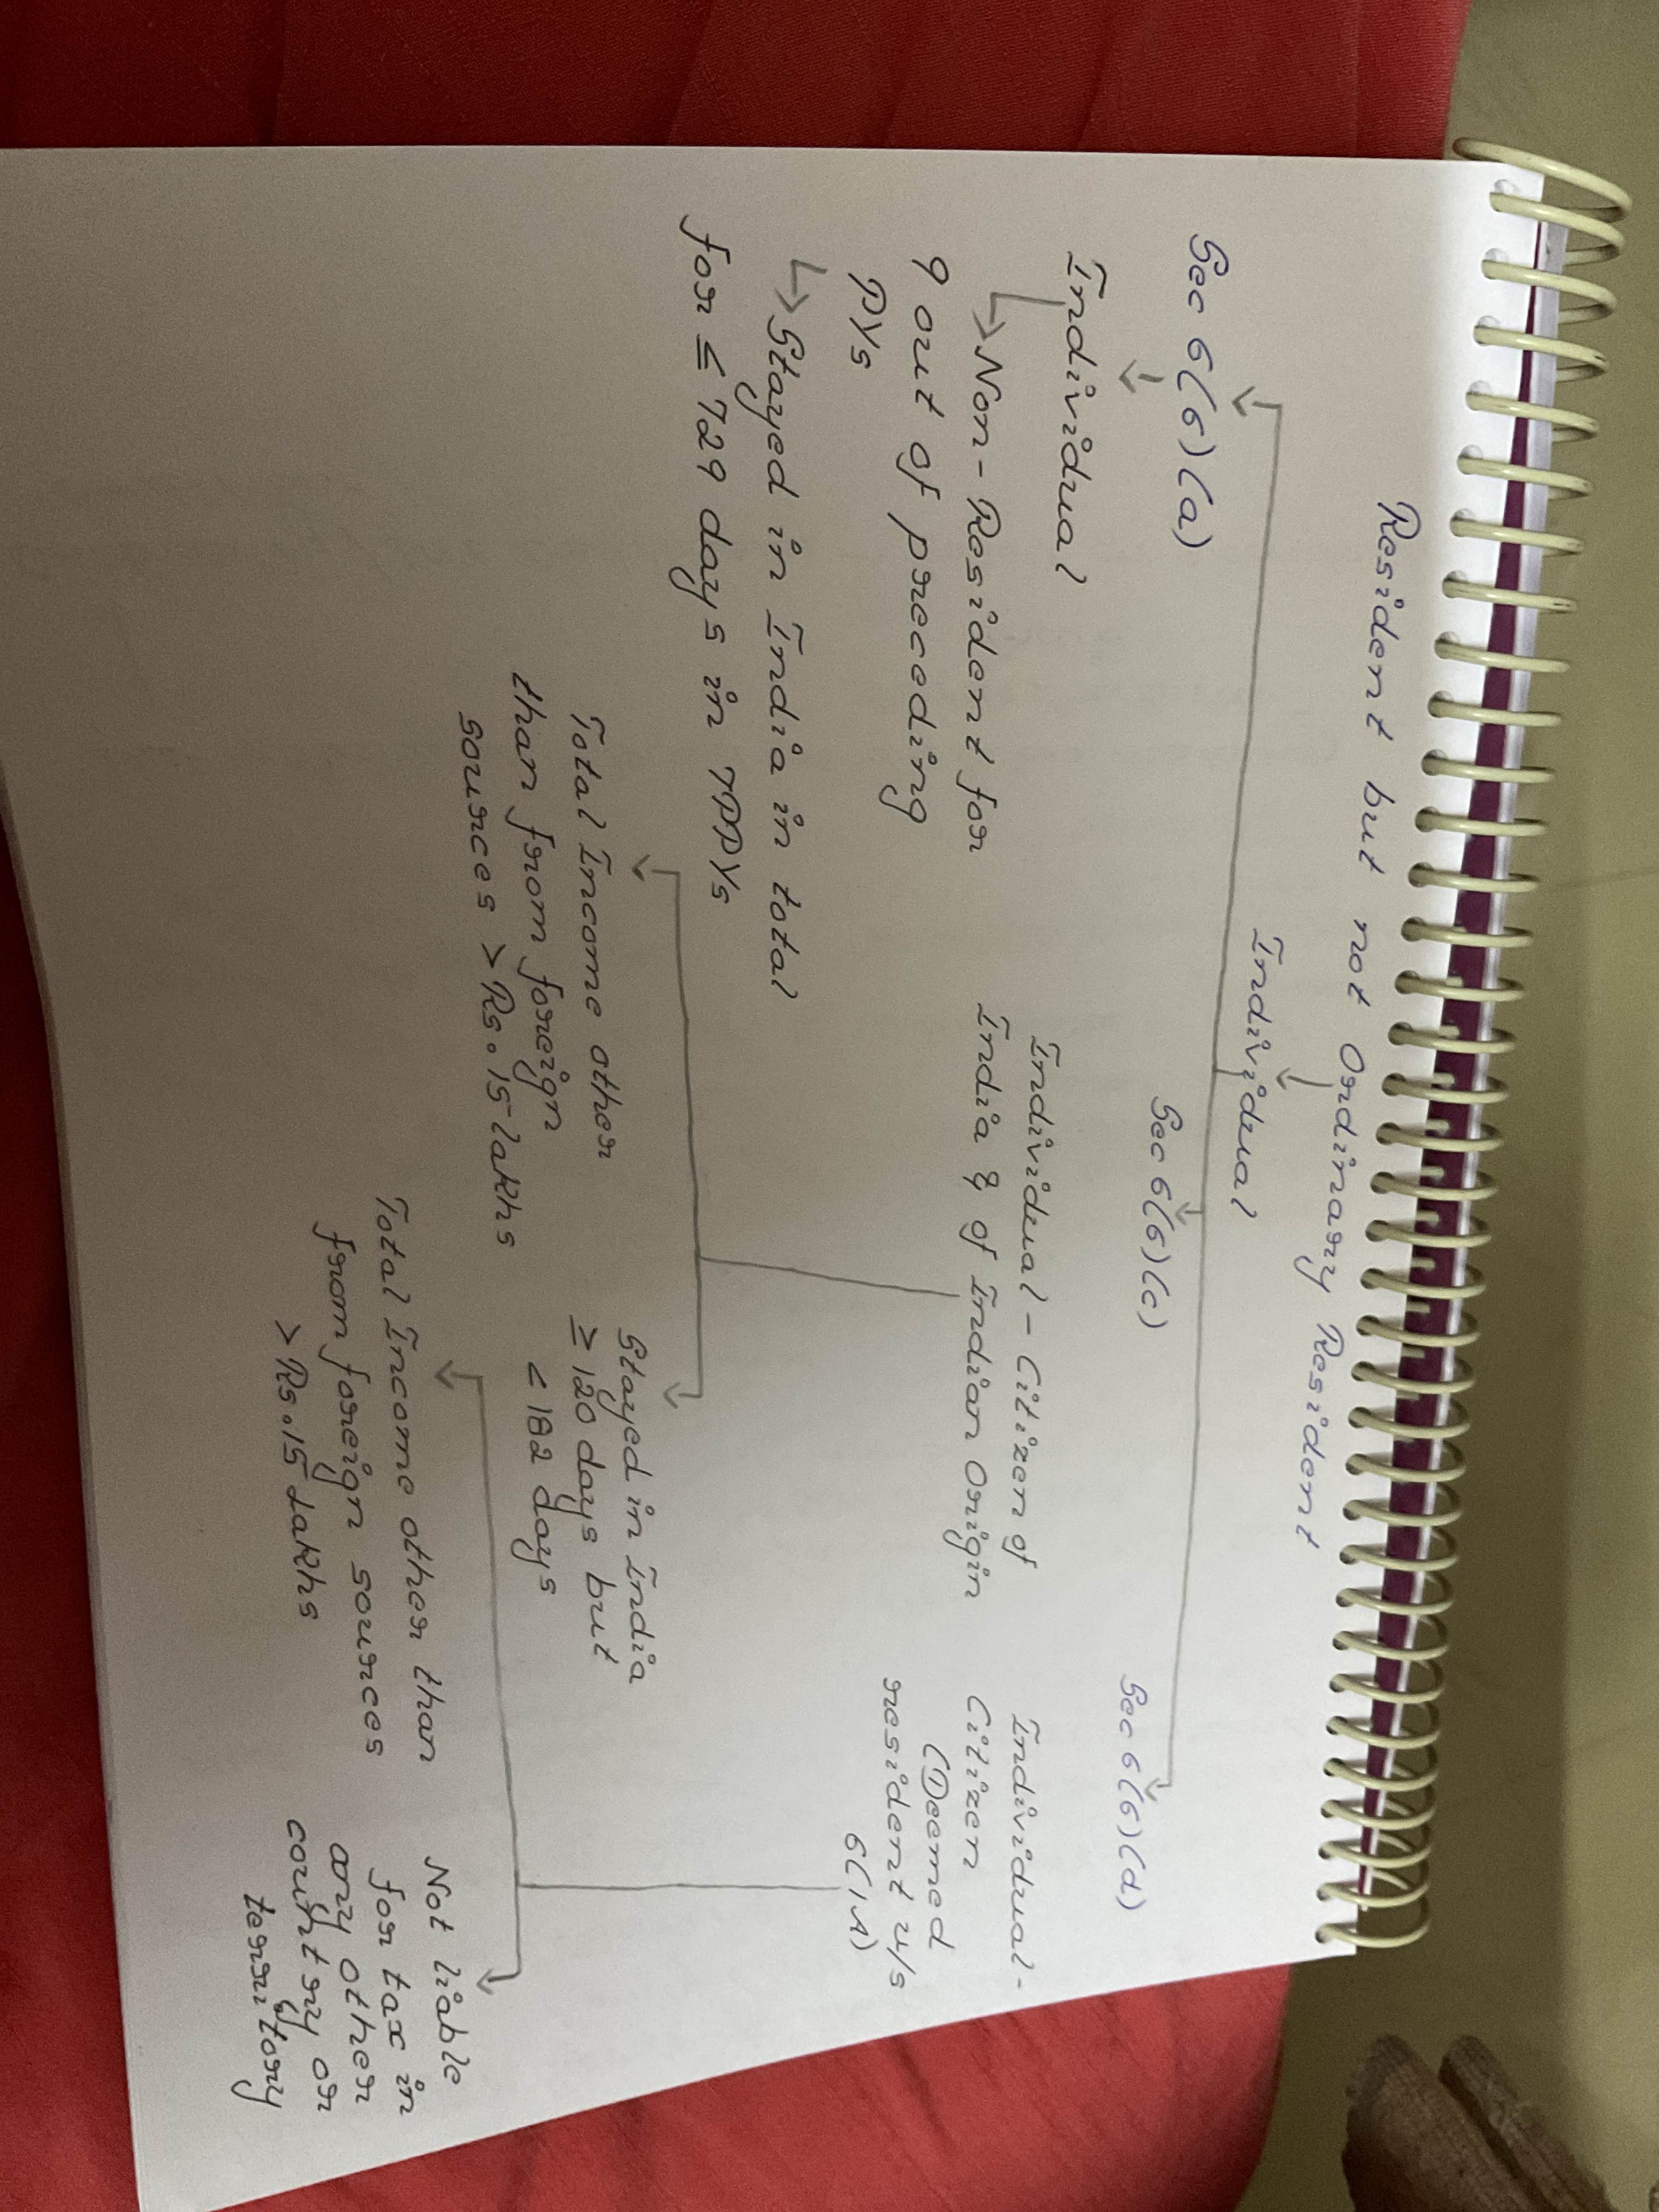 Resident but not Ordinary Resident
Individual
Sec 6(6)(a)
Individual
Non-Resident for
9 out of preceding
PYs
Stayed in India in total
for ≤ 729 days in 7PPYs
Sec 6(6)(c)
Individual - Citizen of
India & of Indian Origin
Total Income other
than from foreign
sources > Rs. 15 lakhs
Stayed in India
≥ 120 days but
< 182 days
Sec 6(6)(d)
Individual -
Citizen
(Deemed
resident u/s
6(1A)
Total Income other than
from foreign sources
> Rs. 15 Lakhs
Not liable
for tax in
any other
country or
territory